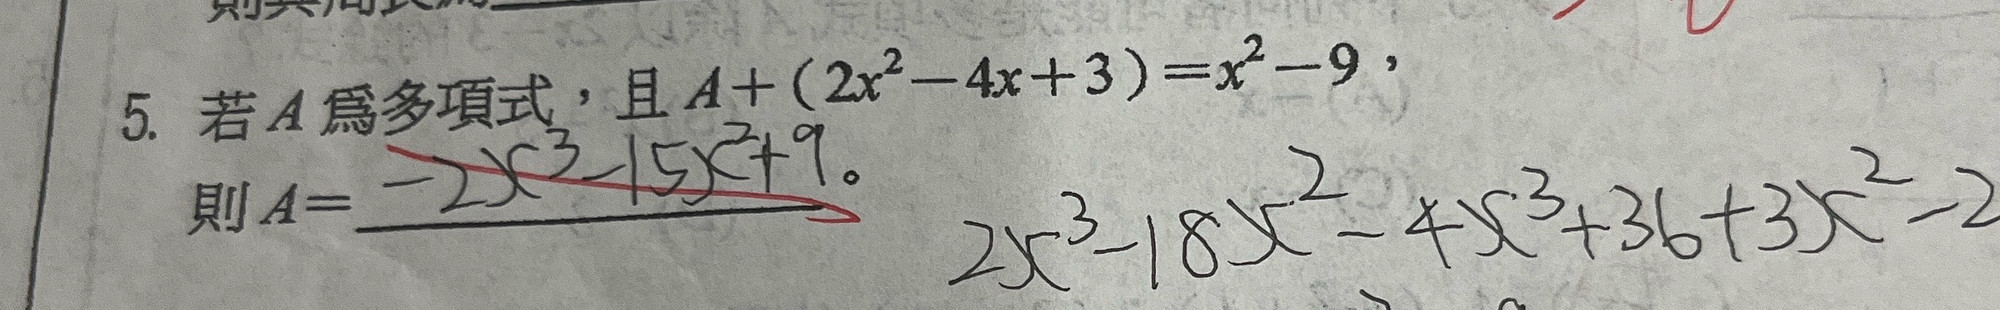 5. 若 A 為多項式，且 A+(2x²-4x+3)=x²-9，
則 A= -2x³-15x²+9。
2x³-18x²-4x³+36+3x²-2